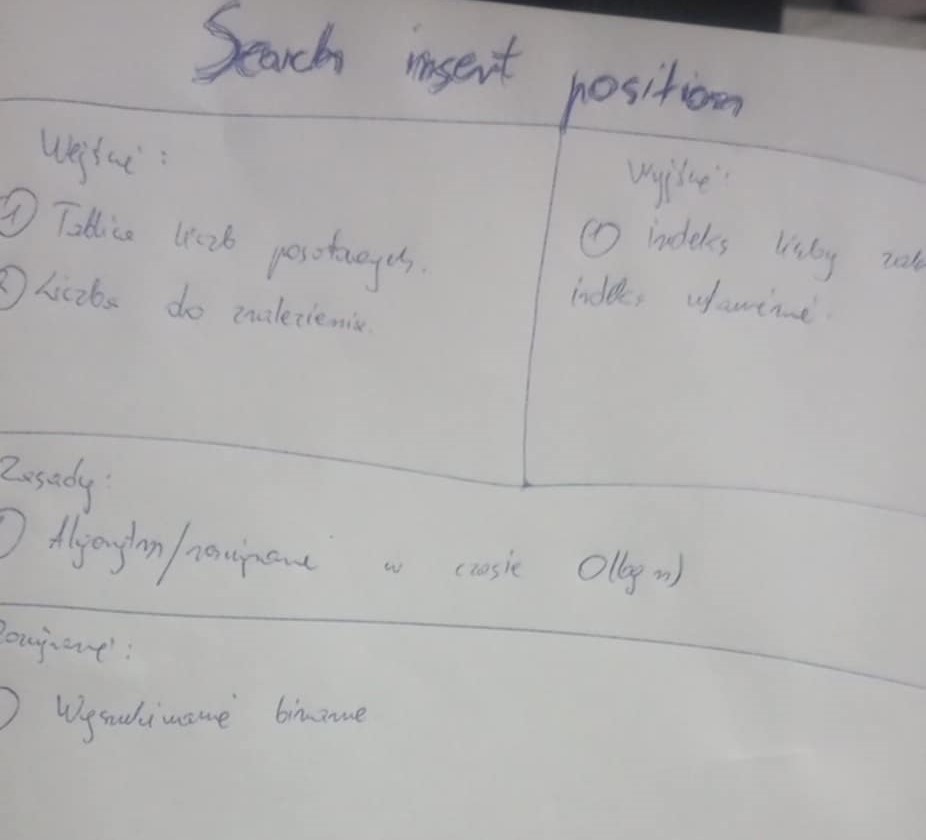 Search insert position
Wejście:
① Tablica liczb posortowanych.
② Liczba do znalezienia.
Wyjście:
① indeks liczby
indeks wstawienia.
Zasady:
Algorytm/rozwiązanie w czasie O(log n)
Rozwiązanie:
Wyszukiwanie binarne